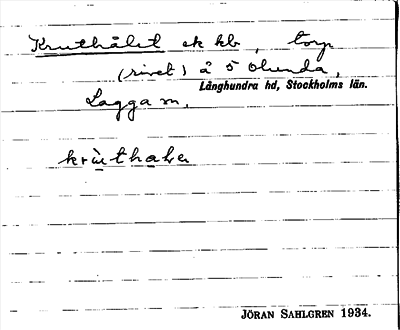 Kruthålet ek kb, torp
(rivet) å 5 Olunda,
Långhundra hd, Stockholms län.
Lagga sn.
krùthalet
JÖRAN SAHLGREN 1934.